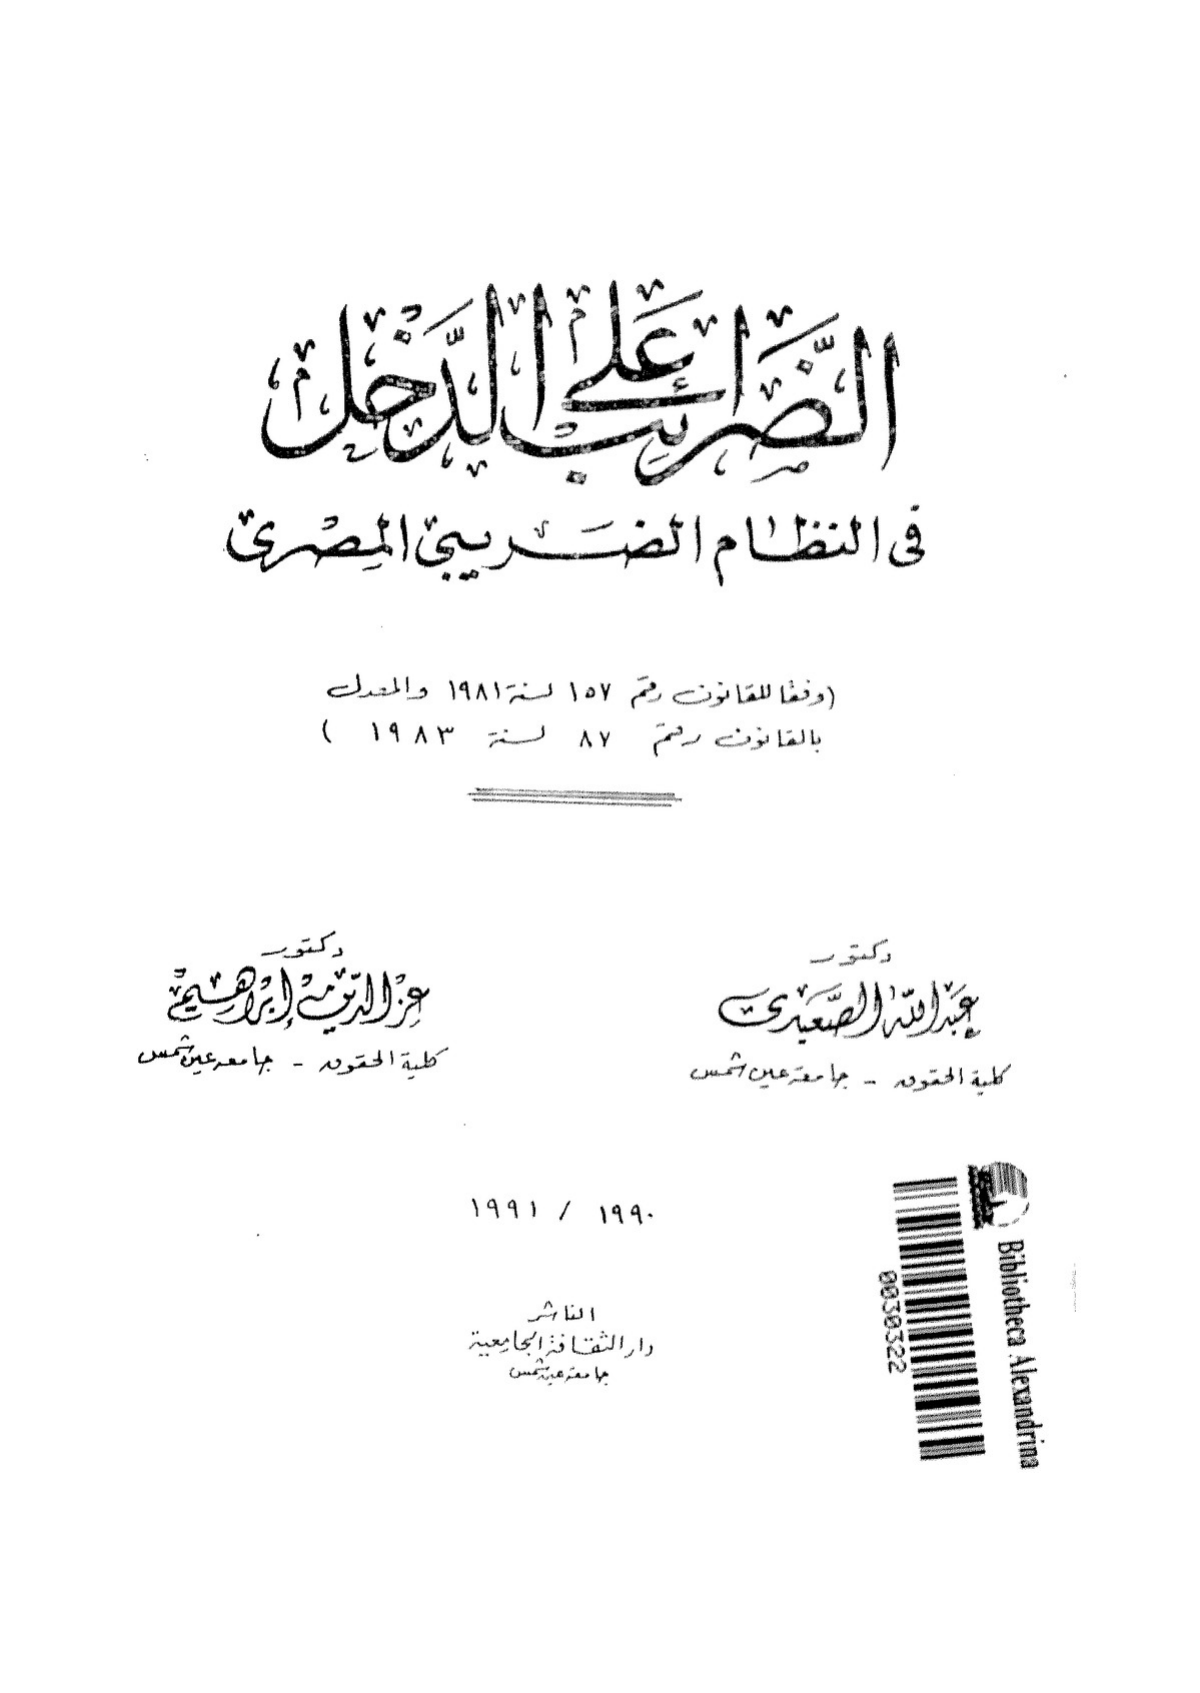 الضَّرائب على الدَّخل
فى النظام الضريبى المِصرى
(وفقًا للقانون رقم ١٥٧ لسنة ١٩٨١ والمعدل
بالقانون رقم ٨٧ لسنة ١٩٨٣ )
دكتور
عبد الله الصَّعيدى
كلية الحقوق - جامعة عين شمس
دكتور
عز الدين إبراهيم
كلية الحقوق - جامعة عين شمس
١٩٩٠ / ١٩٩١
الناشر
دار الثقافة الجامعية
جامعة عين شمس
Bibliotheca Alexandrina
0030322